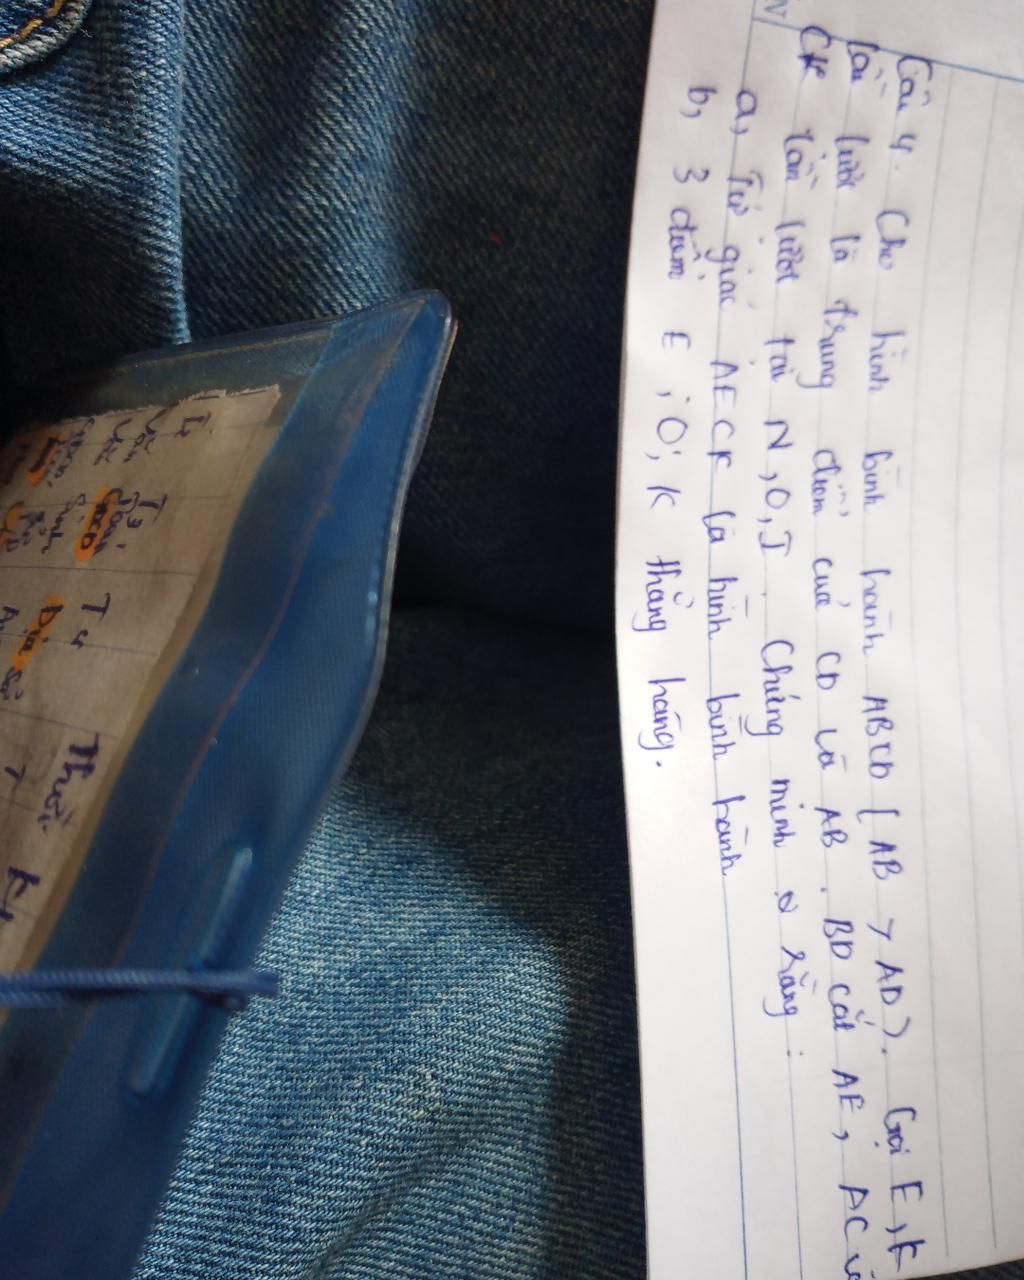 Câu 4. Cho hình bình hành ABCD (AB > AD). Gọi E, K
lần lượt là trung điểm của CD và AB. BD cắt AE, AC và
CK lần lượt tại N, O, I. Chứng minh rằng:
a, Tứ giác AECK là hình bình hành
b, 3 điểm E; O; K thẳng hàng.
T4
Địa
Thời